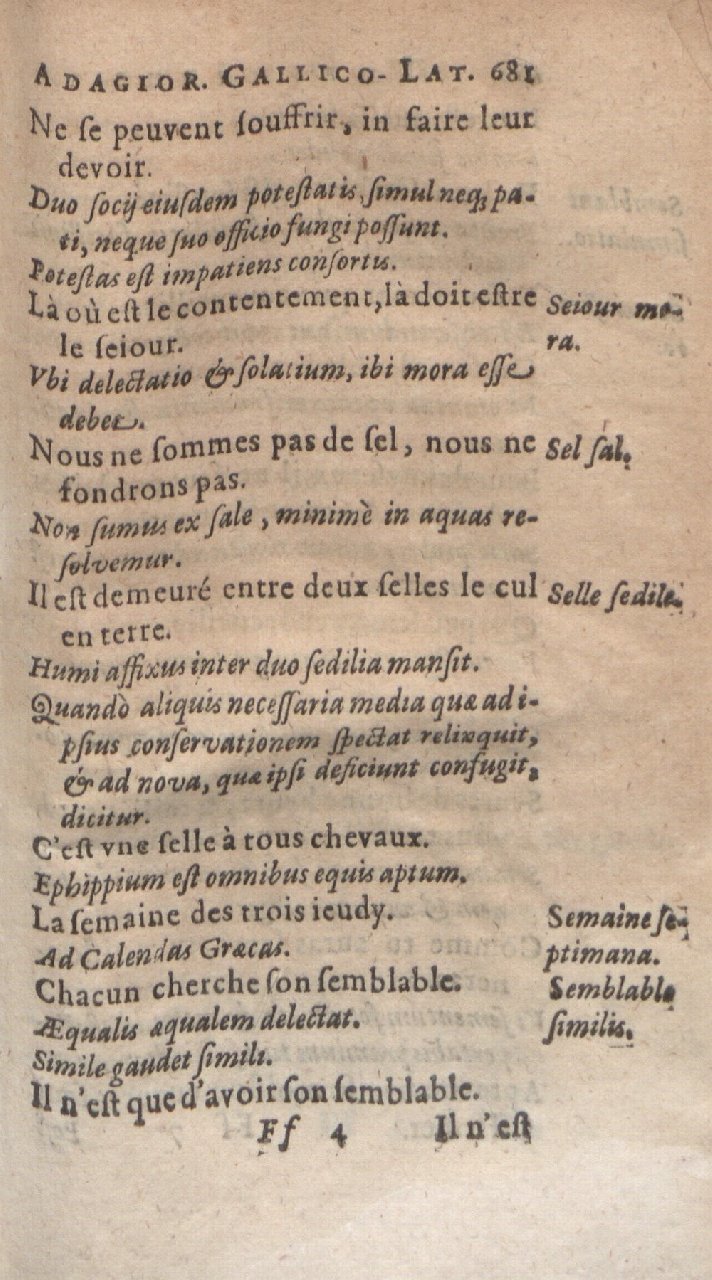 ADAGIOR. GALLICO-LAT. 681
Ne se peuvent souffrir, in faire leur
devoir.
Duo socij eiusdem potestatis, simul neq; pa-
ti, neque suo officio fungi possunt.
Potestas est impatiens consortis.
Là où est le contentement, là doit estre
le seiour.
Seiour mo-
ra.
Vbi delectatio & solatium, ibi mora esse
debet.
Nous ne sommes pas de sel, nous ne
fondrons pas.
Sel sal.
Non sumus ex sale, minimè in aquas re-
solvemur.
Il est demeuré entre deux selles le cul
en terre.
Selle sedile.
Humi affixus inter duo sedilia mansit.
Quandò aliquis necessaria media quæ ad i-
psius conservationem spectat relinquit,
& ad nova, quæ ipsi deficiunt confugit,
dicitur.
C'est vne selle à tous chevaux.
Ephippium est omnibus equis aptum.
La semaine des trois ieudy.
Semaine se-
ptimana.
Ad Calendas Græcas.
Chacun cherche son semblable.
Semblable
similis.
Æqualis æqualem delectat.
Simile gaudet simili.
Il n'est que d'avoir son semblable.
Ff 4 Il n'est